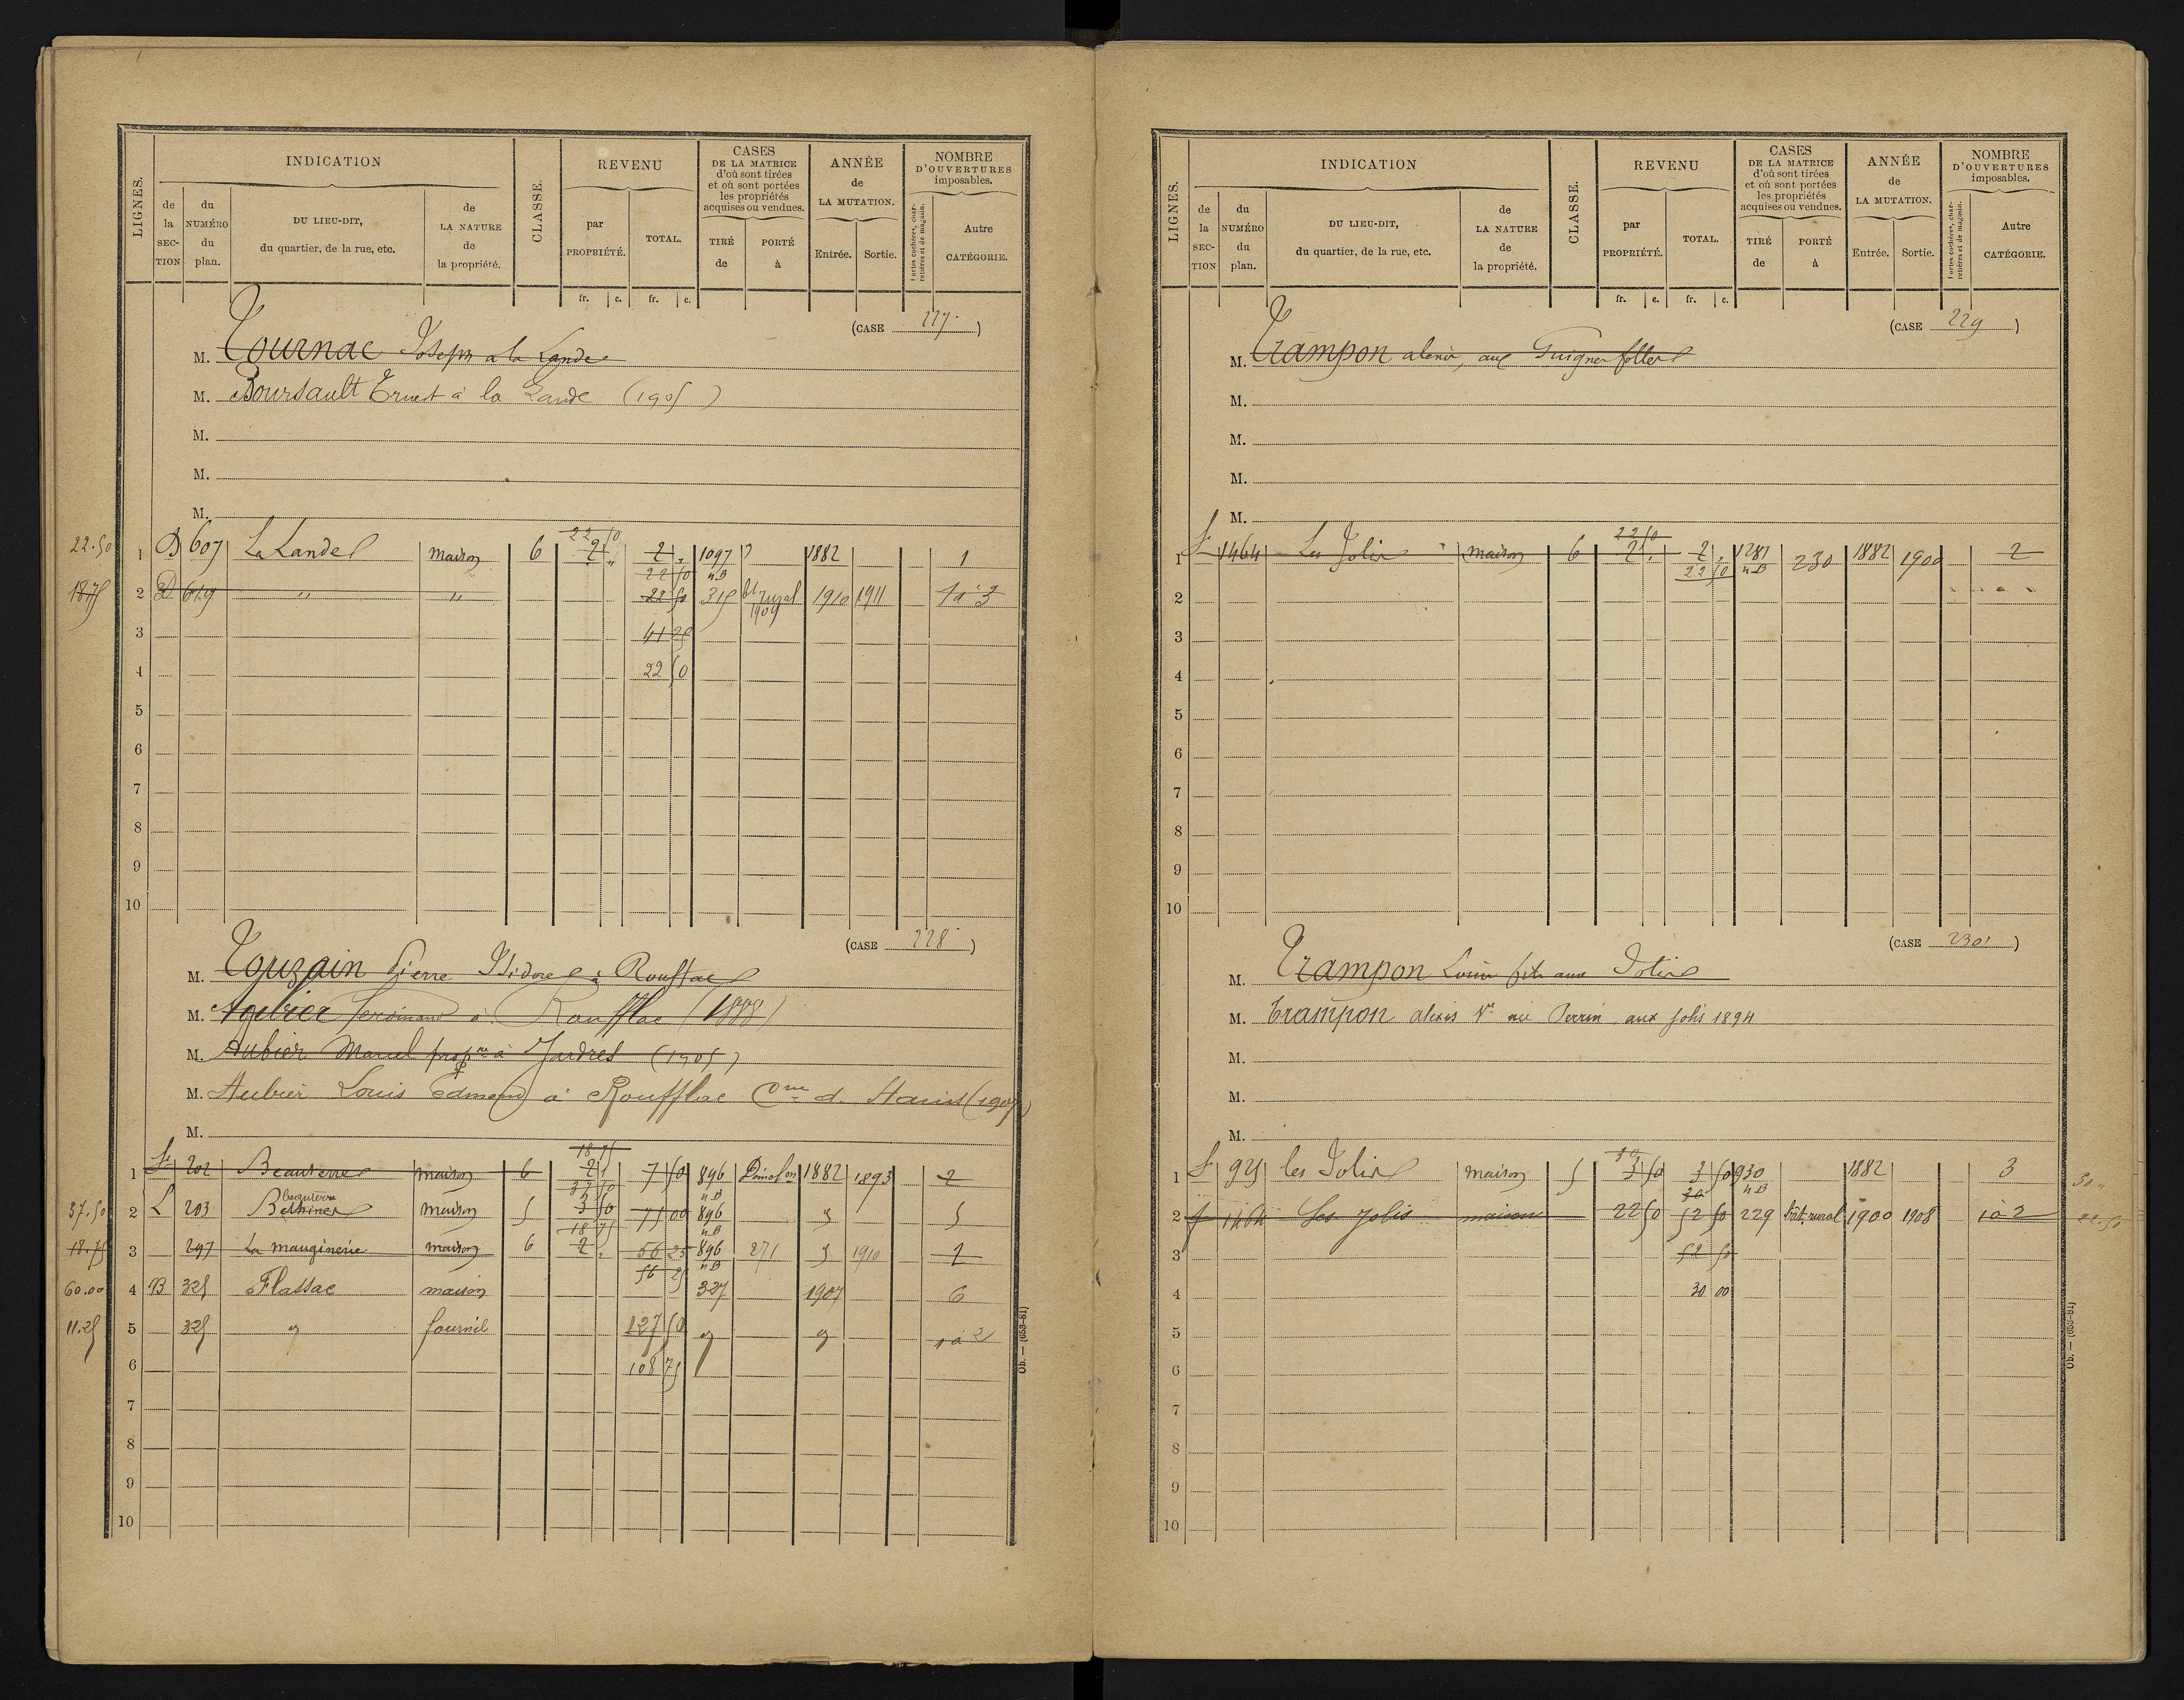 LIGNES.
INDICATION
de la SECTION
du NUMÉRO du plan.
DU LIEU-DIT, du quartier, de la rue, etc.
de LA NATURE de la propriété.
CLASSE.
REVENU
par PROPRIÉTÉ.
TOTAL.
fr. c. fr. c.
CASES DE LA MATRICE d'où sont tirées et où sont portées les propriétés acquises ou vendues.
TIRÉ de
PORTÉ à
ANNÉE de LA MUTATION.
Entrée. Sortie.
NOMBRE D'OUVERTURES imposables.
Portes cochères, charretières et de magasin.
Autre CATÉGORIE.
(CASE 227)
M. Tournac Joseph a la Lande
M. Boursault Ernest à la Lande (1905)
M.
M.
M.
22 50
22.50 1 B 607 La Lande maison 6 2 " 2 " 1097 1882 1
22 50 n.B
18.75 2 D 619 " " 22 50 315 bt rural 1909 1910 1911 1 à 3
3 41 25
4 22 50
5
6
7
8
9
10
(CASE 228)
M. Touzain Pierre Isidore à Roufflac
M. Aubier Ferdinand à Roufflac (1888)
M. Aubier Marcel propre à Jardres (1905)
M. Aubier Louis Edmond à Roufflac Cne de (1907)
M.
18 75
1 202 Beauterre maison 6 2 " 7 50 896 Démolon 1882 1893 2
37 50 n.B
37.50 2 L 203 maison 5 3 50 75 00 896 5
18 75 n.B
18.75 3 297 La mauginerie maison 6 2 " 56 25 896 271 1910 2
56 25 n.B
60.00 4 B 325 Flassac maison 327 1907 6
11.25 5 325 fournil 127 50 1 à 2
6 108 75
7
8
9
10
Ob. — (653-81)
LIGNES.
INDICATION
de la SECTION
du NUMÉRO du plan.
DU LIEU-DIT, du quartier, de la rue, etc.
de LA NATURE de la propriété.
CLASSE.
REVENU
par PROPRIÉTÉ.
TOTAL.
fr. c. fr. c.
CASES DE LA MATRICE d'où sont tirées et où sont portées les propriétés acquises ou vendues.
TIRÉ de
PORTÉ à
ANNÉE de LA MUTATION.
Entrée. Sortie.
NOMBRE D'OUVERTURES imposables.
Portes cochères, charretières et de magasin.
Autre CATÉGORIE.
(CASE 229)
M. Trampon alexis, aux
M.
M.
M.
M.
22 50
1 1464 Les Jolis maison 6 2 " 2 " 1281 230 1882 1900 2
22 50 n.B
2
3
4
5
6
7
8
9
10
(CASE 230)
M. Trampon Louis fils aux Jolis
M. Trampon alexis Ve née Perrin aux Jolis 1894
M.
M.
M.
30
1 925 les Jolis maison 5 3 50 3 50 930 1882 3 30 "
30 n.B
2 1464 Les Jolis maison 22 50 52 50 229 bât. rural 1900 1908 1 à 2 22.50
3 52 50
4 30 00
5
6
7
8
9
10
Ob. — (653-81)